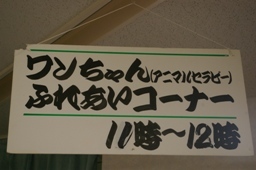 ワンちゃん(アニマルセラピー)
ふれあいコーナー
11時～12時